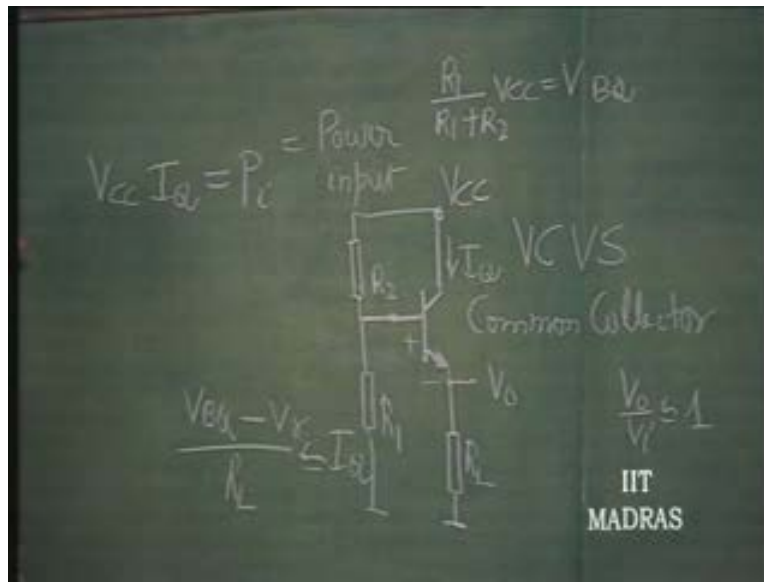 R1/(R1+R2) VCC = VBQ
VCC IQ = Pi = Power input
VCC
R2
IQ
VCVS
Common Collector
+
−
V0
R1
RL
(VBQ − Vγ)/RL ≃ IQ
V0/Vi ≃ 1
IIT
MADRAS